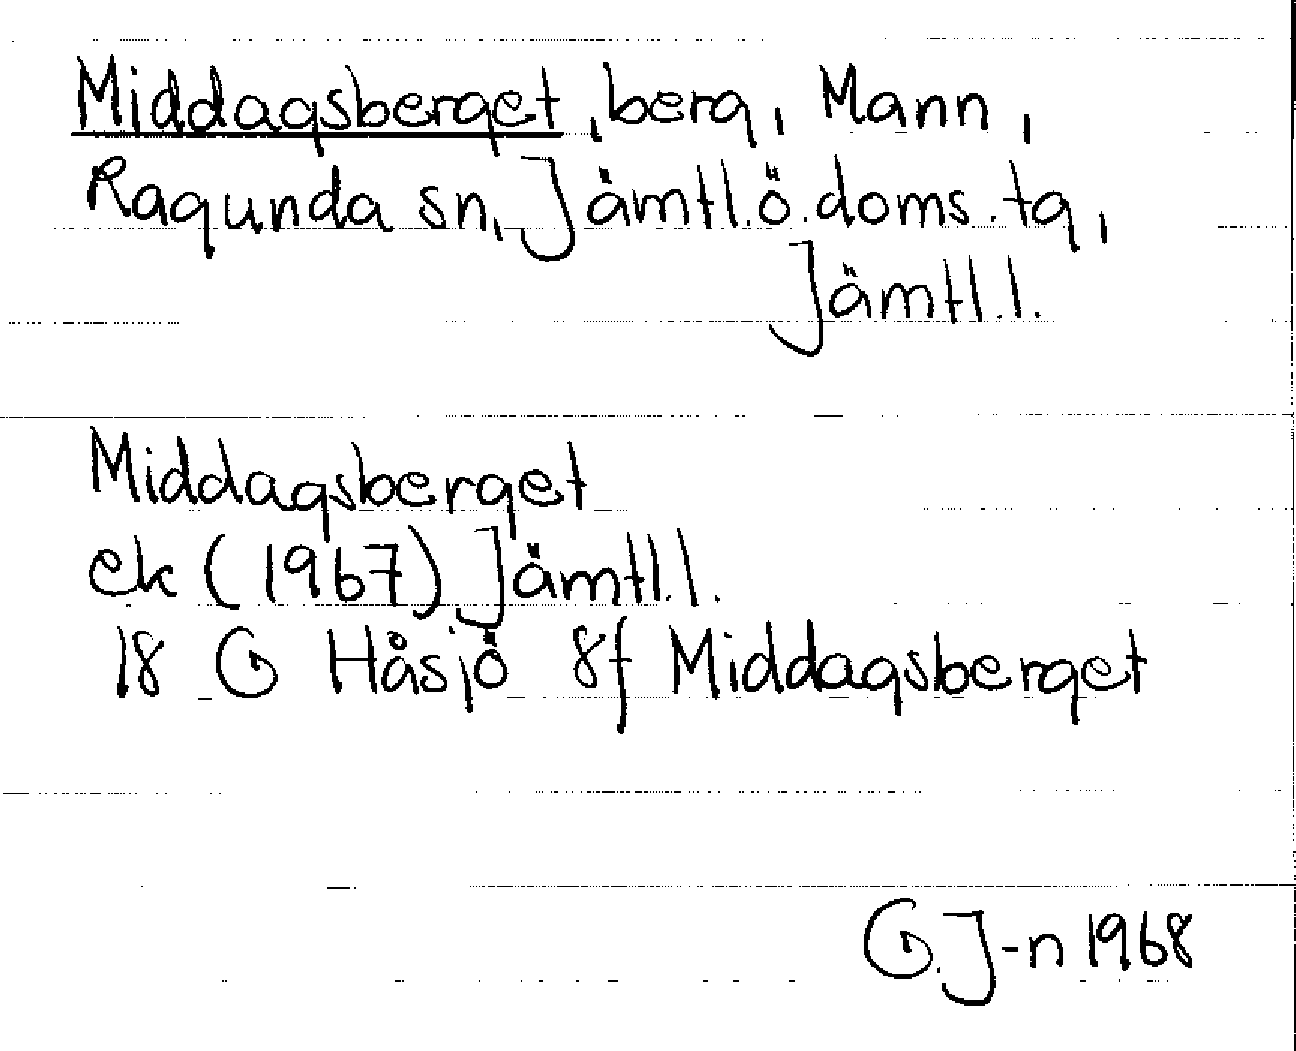 Middagsberget, berg, Mann,
Ragunda sn, Jämtl.ö.doms.tg,
Jämtl.l.
Middagsberget
ek (1967) Jämtl.l.
18 G Håsjö 8f Middagsberget
G.J-n 1968